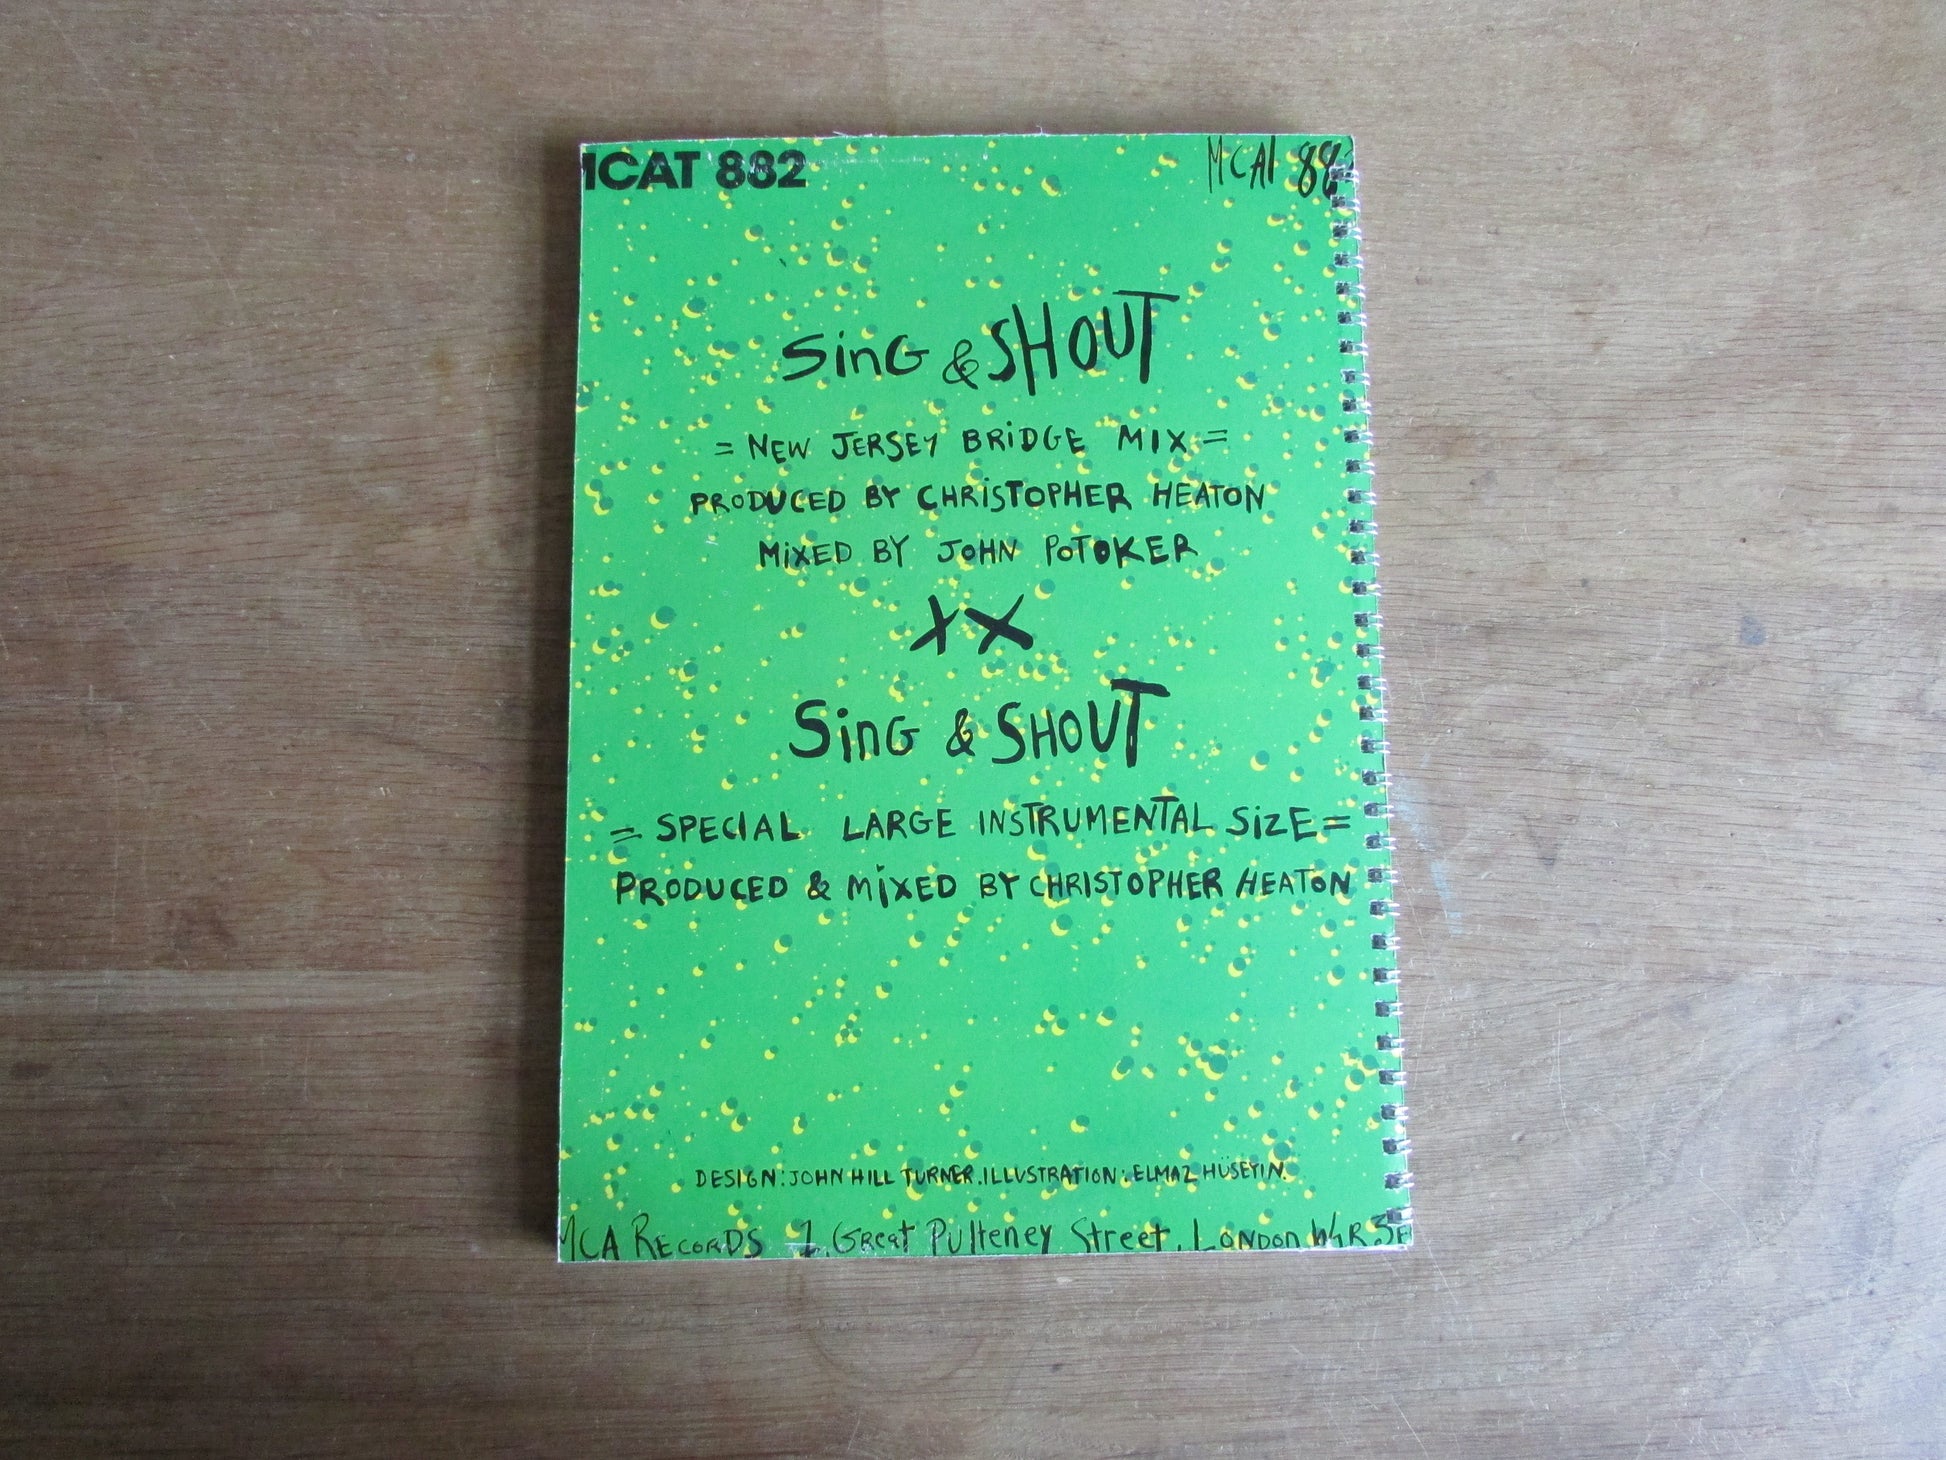 ICAT 882
MCAT 882
SinG & SHOUT
= NEW JERSEY BRiDGE MIX =
PRODUCED BY CHRiSTOPHER HEATON
MiXED BY JOHN POTOKER
XX
SinG & SHOUT
= SPECIAL LARGE INSTRUMENTAL SiZE =
PRODUCED & MiXED BY CHRISTOPHER HEATON
DESIGN: JOHN HILL TURNER. ILLUSTRATION: ELMAZ HÜSEYIN.
MCA RECORDS 1, Great Pulteney Street, LONDON